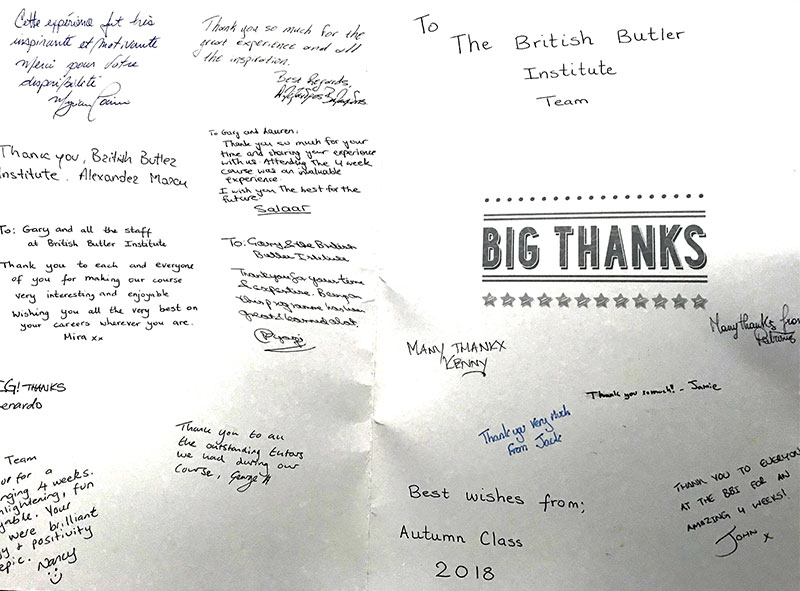 Cette expérience fut très
inspirante et motivante
Merci pour votre
disponibilité
Thank you so much for the
great experience and all
the inspiration.
Best Regards
Thank you, British Butler
Institute. Alexander Marcu
To Gary and Lauren,
Thank you so much for your
time and sharing your experience
with us. Attending The 4 week
course was an invaluable
experience.
I wish you The best for the
future
Salaar
To: Gary and all the staff
at British Butler Institute
Thank you to each and everyone
of you for making our course
very interesting and enjoyable
Wishing you all the very best on
your careers wherever you are.
Mira xx
To: Garry & the British
Butler Institute
Thank you for your time
& expertise. Being on
this programme has been
great & learned alot.
IG! THANKS
enardo
Team
for a
nging 4 weeks.
lightening, fun
yable. Your
were brilliant
y & positivity
epic.
Nancy
Thank you to all
the outstanding tutors
we had during our
course, George H
To
The British Butler
Institute
Team
BIG THANKS
Many thanks from
MANY THANKX
KENNY
Thank you so much! - Jamie
Thank you very Much
From Jack
Best wishes from;
Autumn Class
2018
THANK YOU TO EVERYON
AT THE BBI FOR AN
AMAZING 4 WEEKS!
JOHN x